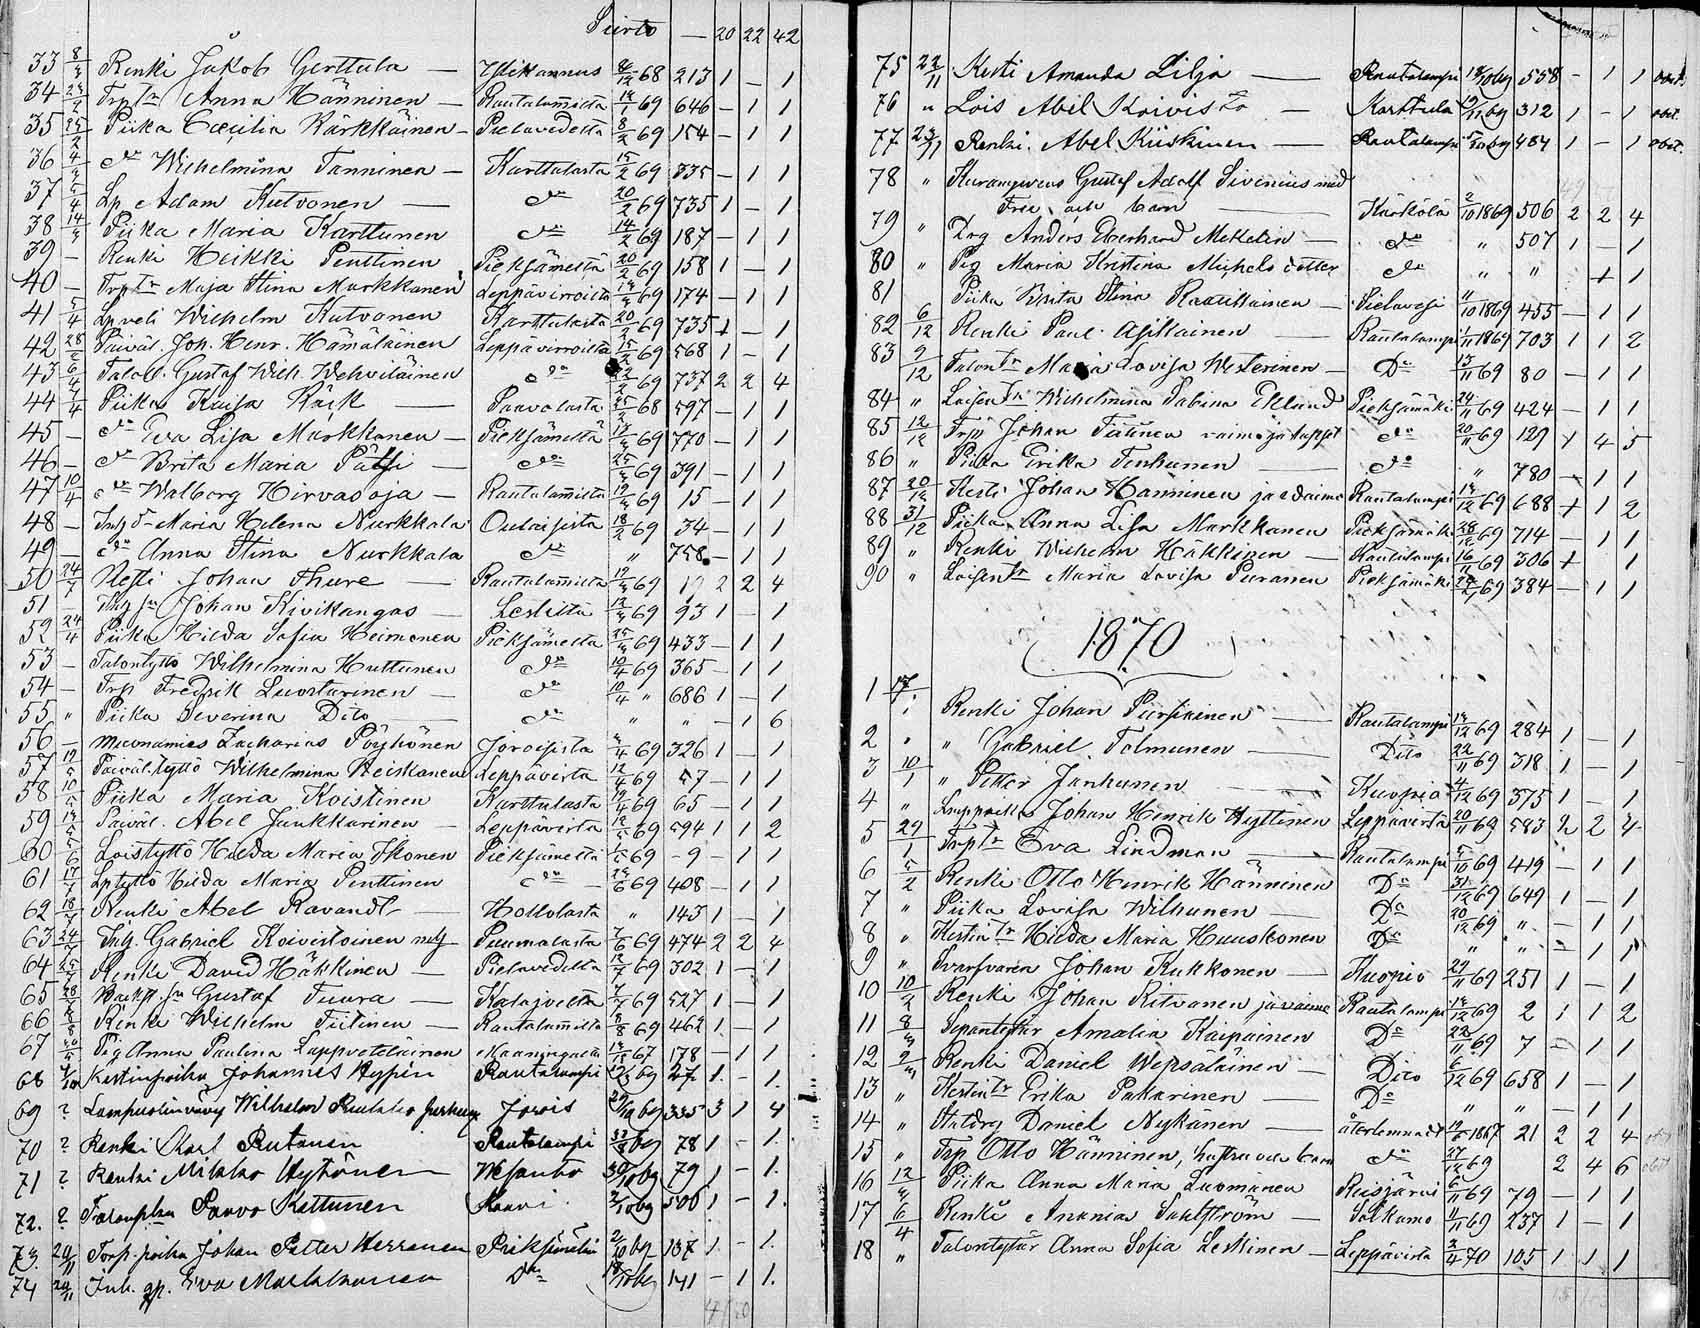 Siirto — 20 22 42
33 8/3 Renki Jakob Gerttula — Ylikannus 4/12 68 213 1 — 1
34 23/2 Trp tr Anna Hänninen — Rautalammilta 12/1 69 646 — 1 1
35 25/2 Piika Cæcilia Kärkkäinen — Pielavedeltä 8/2 69 154 — 1 1
36 4/3 do Wilhelmina Tanninen — Karttulasta 15/2 69 335 — 1 1
37 5/4 Lp Adam Kutvonen — do 20/2 69 735 1 — 1
38 14/3 Piika Maria Karttunen do 14/2 69 187 — 1 1
39 — Renki Heikki Penttinen Pieksämeltä 20/2 69 158 1 — 1
40 — Trp tr Maja Stina Markkanen Leppävirroilta 69 174 — 1 1
41 5/4 Lp veli Wilhelm Kutvonen Karttulasta 20/2 69 735 1 — 1
42 28/2 Päiväl. Joh. Henr. Hämäläinen Leppävirroilta 15/2 69 568 1 — 1
43 6/4 Taloll. Gustaf Wilh. Wehviläinen do 69 737 2 2 4
44 7/4 Piika Kaisa Räik — Paavolasta 68 597 — 1 1
45 — do Eva Lisa Markkanen — Pieksämeltä 69 770 — 1 1
46 — do Brita Maria Pätsi — do 69 391 — 1 1
47 10/4 do Walborg Hirvasoja — Rautalammilta 69 15 — 1 1
48 — Maria Helena Nurkkala Oulaisista 18/2 69 34 — 1 1
49 — do Anna Stina Nurkkala do " 758 — 1 1
50 Johan Thure — Rautalammilta 69 19 2 2 4
51 — Johan Kivikangas — Lestiltä 69 93 1 — 1
52 24/4 Piika Hilda Sofia Heimonen Pieksämeltä 69 433 — 1 1
53 — Talontyttö Wilhelmina Huttunen do 10/4 69 365 — 1 1
54 — Trp Fredrik Luostarinen — do 10/4 " 686 1 — 1
55 " Piika Severina Dito do " " — 1 6
56 — Zacharias Pöyhönen Joroisista 69 326 1 — 1
57 Päiväl. tyttö Wilhelmina Heiskanen Leppävirta 12/4 69 57 — 1 1
58 Piika Maria Koistinen Karttulasta 69 65 — 1 1
59 Päiväl. Abel Junkkarinen — Leppävirta 69 594 1 1 2
60 Loistyttö Hilda Maria Ikonen Pieksämeltä 69 — 9 — 1 1
61 Lp tyttö Hilda Maria Penttinen do — 69 408 — 1 1
62 Renki Abel Ravandt — Hollolasta " 143 1 — 1
63 Gabriel Koivistoinen Puumalasta 69 474 2 2 4
64 Renki David Häkkinen — Pielavedeltä 69 302 1 — 1
65 Gustaf Tuura — Kalajoelta 69 527 1 — 1
66 Renki Wilhelm Tiitinen — Rautalammilta 69 462 1 1
67 Pig Anna Paulina Lappveteläinen Maaningalta 67 178 — 1 1
68 Kestinpoika Johannes Hyppén Rautalampi 69 27 1 — 1
69 ? Lampuotinvävy Wilhelm Jorois 69 335 3 1 4
70 ? Renki Karl Rutanen Rautalampi 69 78 1 — 1
71 ? Renki Mikko Hytönen Wesanto 30/10 69 79 1 — 1
72. ? Paavo Kettunen 2/10 69 500 1 — 1
73. 20/11 Torp. poika Johan Petter Herranen Pieksämäki 69 137 1 — 1
74 20/11 Eva Markkanen Do 18/10 69 141 — 1 1
75 22/11 Kesti Amanda Lilja — Rautalampi 69 558 — 1 1
76 " Lois Abel Koivisto — Karttula 69 312 1 — 1
77 23/11 Renki Abel Kiiskinen — Rautalampi 69 484 1 — 1
78 " Gustaf Adolf Sivenius med
Fru och barn — Kärkölä 2/10 1869 506 2 2 4
79 " Drg Anders Eberhard Mikelin — do " 507 1 — 1
80 " Pig Maria Kristina Michels dotter do " " 1 1
81 Piika Brita Stina Raatikainen — Pielavesi 11/10 1869 455 — 1 1
82 6/12 Renki Paul Asikainen — Rautalampi 1/11 1869 703 1 1 2
83 9/12 Talon tr Maria Lovisa Westerinen — Do 13/11 69 80 — 1 1
84 " Loisen tr Wilhelmina Sabina Eklund Pieksämäki 69 424 — 1 1
85 12/12 Trp Johan Tiitinen vaimo ja lapset do 20/11 69 129 1 4 5
86 " Piika Erika Tenhunen — do " 780 — 1 1
87 20/12 Kesti Johan Hänninen ja vaimo Rautalampi 69 688 1 1 2
88 31/12 Piika Anna Lisa Markkanen Pieksämäki 69 714 — 1 1
89 " Renki Wilhelm Häkkinen — Rautalampi 16/11 69 306 1 1
90 " Loisen tr Maria Lovisa Puranen Pieksämäki 69 384 — 1 1
1870
1 17/1 Renki Johan Piirikinen — Rautalampi 69 284 1 — 1
2 " " Gabriel Tolmunen — Dito 22/11 69 318 1 — 1
3 10/1 " Petter Janhunen — Kuopio 4/12 69 375 1 — 1
4 " Johan Henrik Hyttinen Leppävirta 20/11 69 583 2 2 4
5 29/1 Trp tr Eva Lindman — Rautalampi 5/10 69 419 — 1 1
6 5/2 Renki Otto Henrik Hänninen Do 31/12 69 649 1 — 1
7 " Piika Lovisa Wilhunen — Do 20/12 69 " — 1 1
8 " Kestin tr Hilda Maria Huuskonen Do " " — 1 1
9 " Svarfvaren Johan Kukkonen — Kuopio 29/11 69 251 1 — 1
10 10/2 Renki Johan Ritvanen ja vaimo Rautalampi 69 2 1 1 2
11 8/3 Sepäntytär Amalia Kaipainen Do 22/11 69 7 — 1 1
12 9/3 Renki Daniel Wepsäläinen — Dito 6/12 69 658 1 — 1
13 " Kestin tr Erika Pakarinen — Do " " — 1 1
14 " Daniel Nykänen — återlemnadt 1867 21 2 2 4
15 " Trp Otto Hänninen, hustru och barn do 27/12 69 2 4 6
16 12/3 Piika Anna Maria Luomanen Reisjärvi 6/11 69 79 — 1 1
17 6/4 Renki Ananias Sahlström — Sotkamo 11/11 69 237 1 — 1
18 " Talontytär Anna Sofia Leskinen — Leppävirta 2/4 70 105 1 1 1